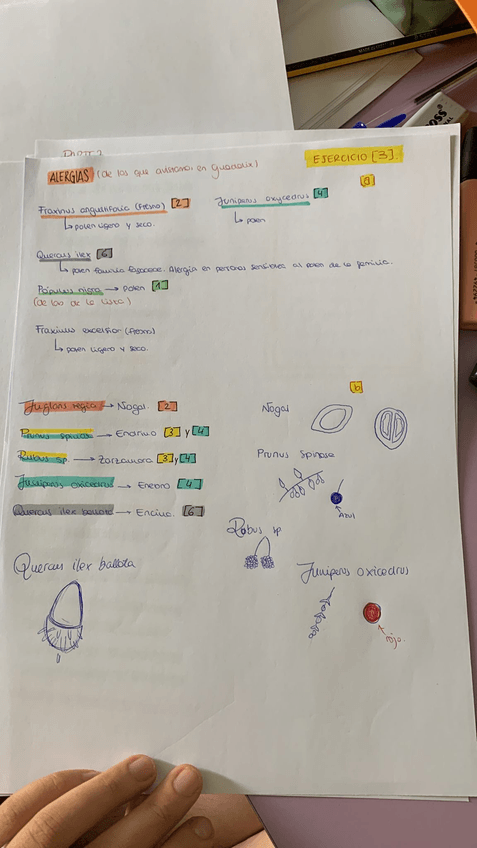 PARTE 2
EJERCICIO [3].
ALERGIAS (de las que avistamos en Guadalix)
a
Fraxinus angustifolia (Fresno) [2]
↳ polen ligero y seco.
Juniperus oxycedrus [4]
↳ polen
Quercus ilex [6]
↳ polen familia fagaceae. Alergia en personas sensibles al polen de la familia.
Populus nigra → Polen [1]
(de las de la lista)
Fraxinus excelsior (Fresno)
↳ polen ligero y seco.
b
Juglans regia → Nogal. [2]
Prunus spinosa → Endrino [3] y [4]
Rubus sp. → Zarzamora [3] y [4]
Juniperus oxicedrus → Enebro [4]
Quercus ilex ballota → Encina. [6]
Nogal
Prunus Spinosa
Azul
Rubus sp
Quercus ilex ballota
Juniperus oxicedrus
rojo.